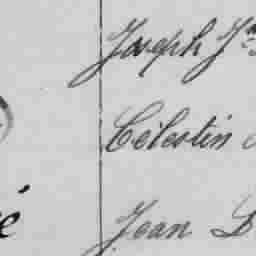 Joseph Jn
Célestin
é Jean B